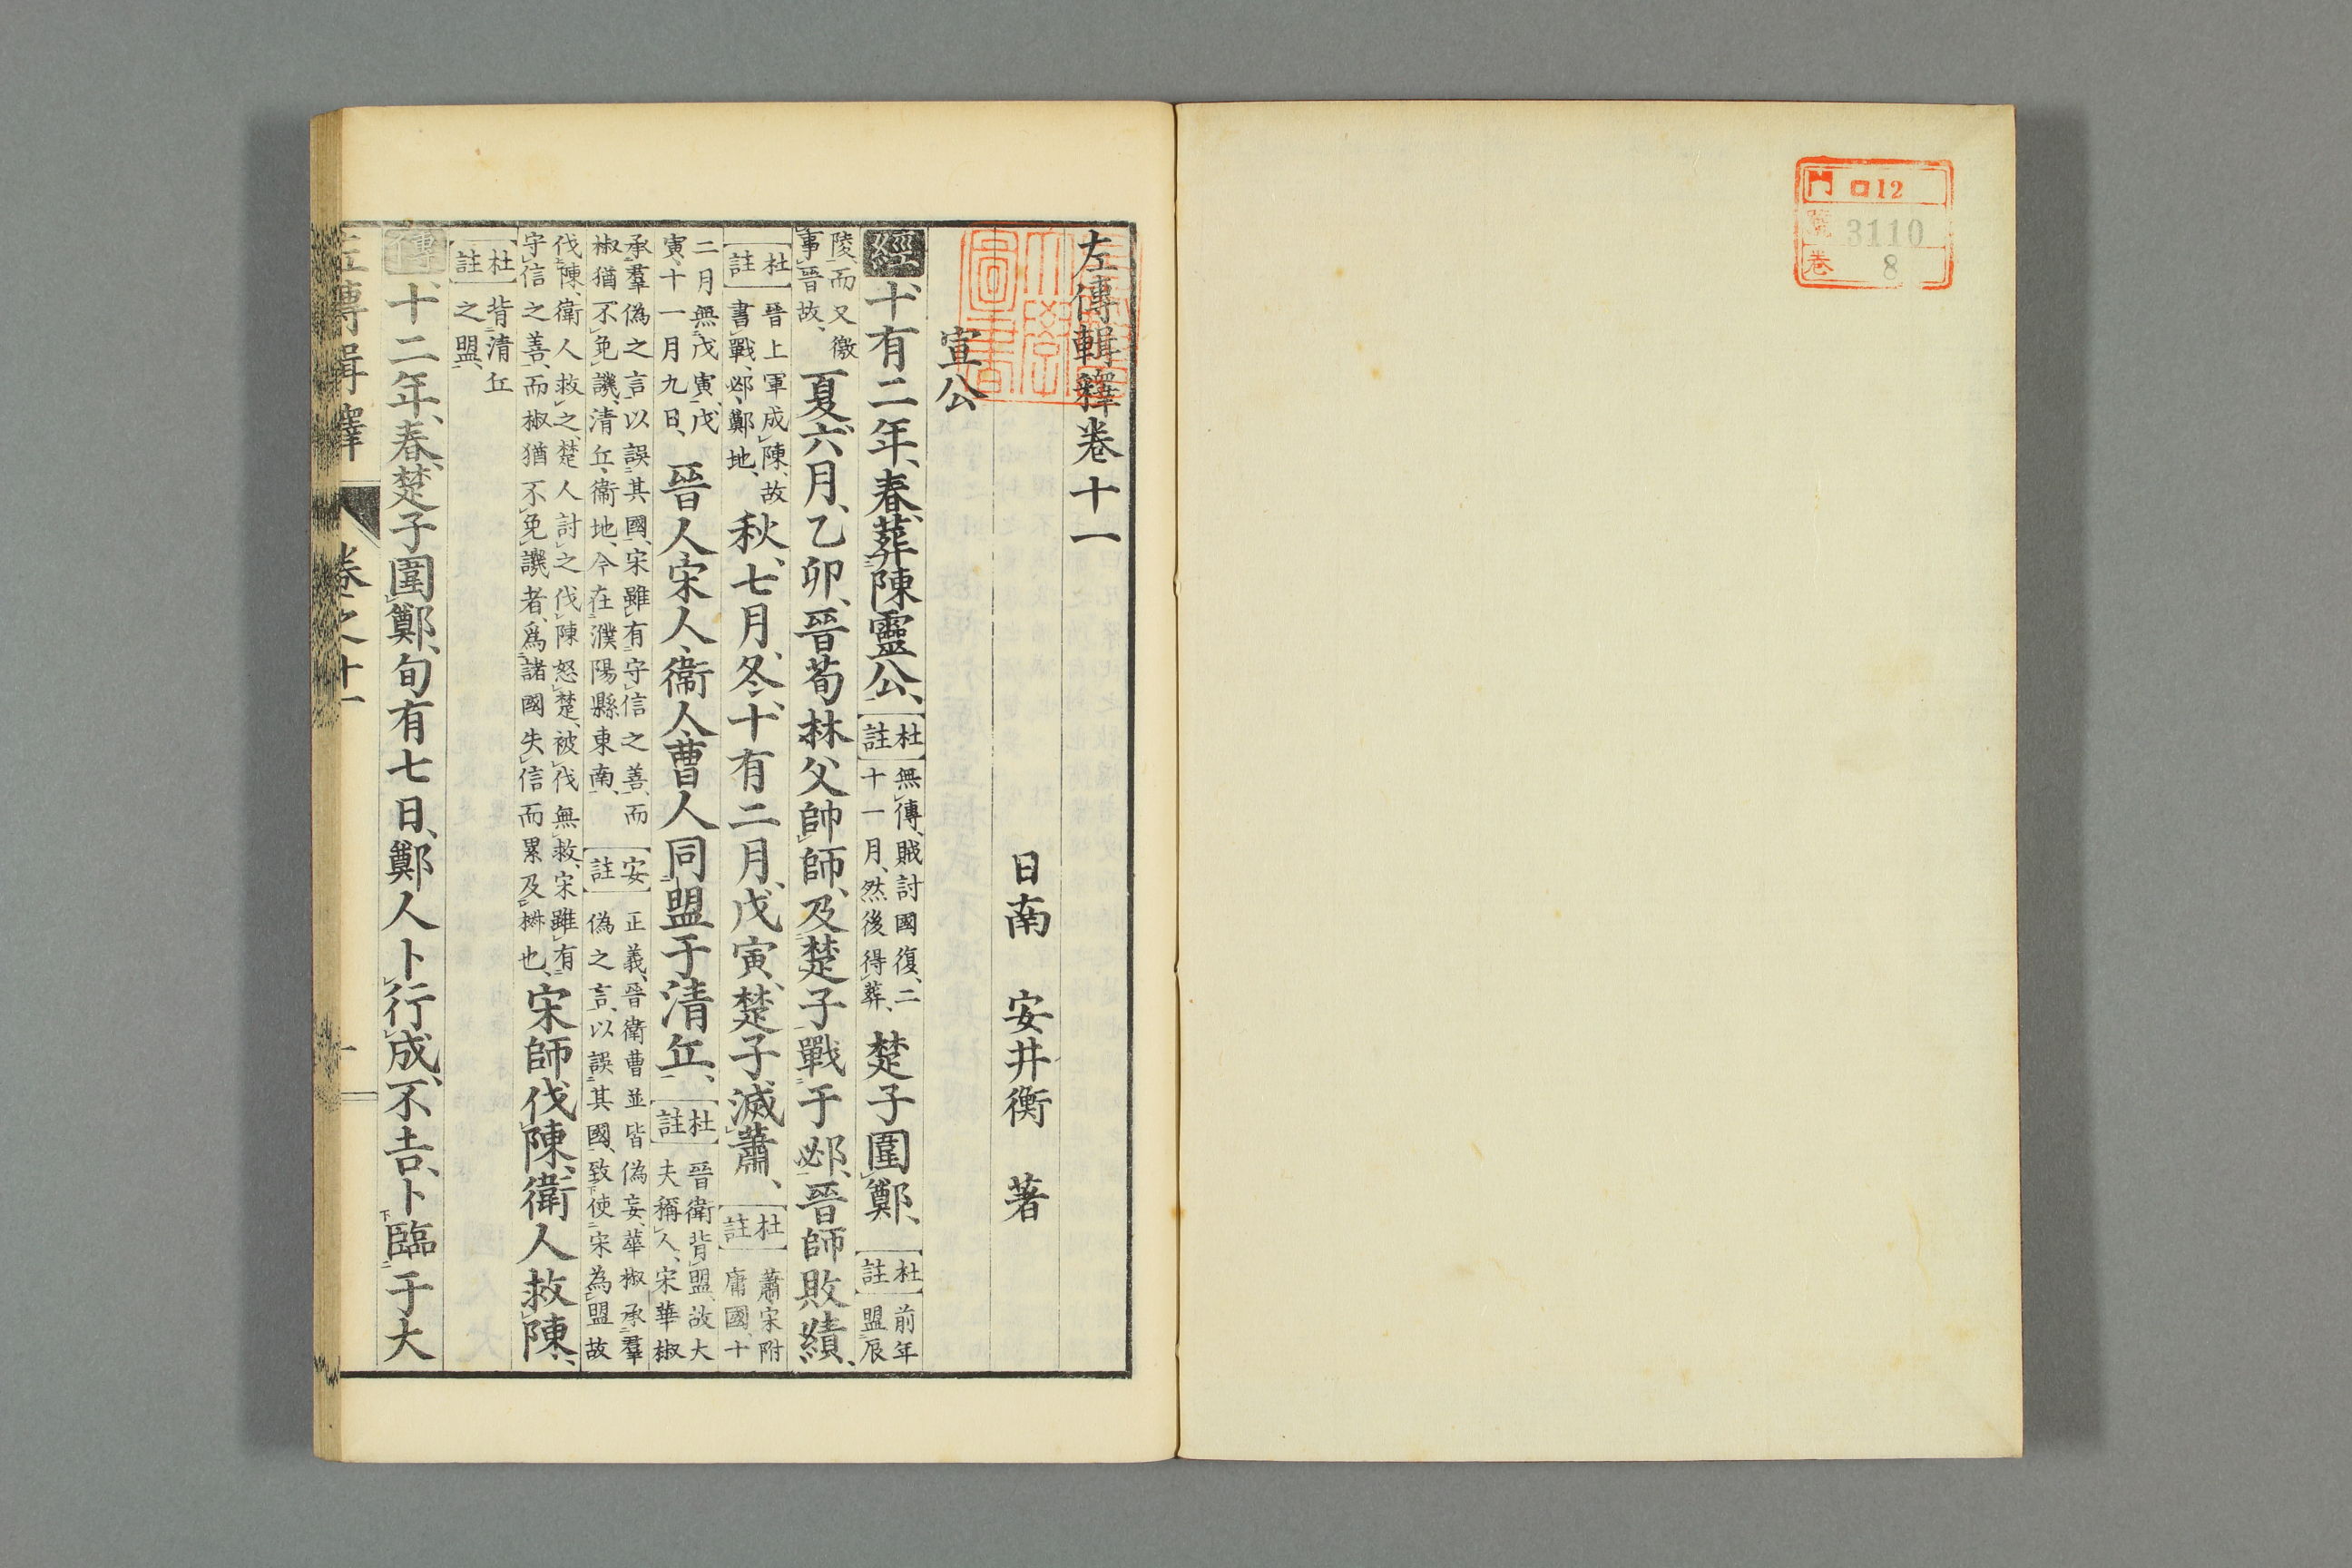 門 口12
號 3110
卷 8
左傳輯釋卷十一
日南 安井衡 著
宣公
經十有二年、春、葬陳靈公、杜註無傳、賊討國復、二十一月、然後得葬、楚子圍鄭、杜註前年盟辰
陵、而又徼事晉故、夏六月、乙卯、晉荀林父帥師、及楚子戰于邲、晉師敗績、
杜註晉上軍成陳、故書戰、邲、鄭地、秋、七月、冬、十有二月、戊寅、楚子滅蕭、杜註蕭、宋附庸國、十
二月無戊寅、戊寅、十一月九日、晉人宋人、衞人、曹人同盟于清丘、杜註晉衛背盟、故大夫稱人、宋華椒
承羣偽之言、以誤其國、宋雖有守信之善、而椒猶不免譏、清丘、衞地、今在濮陽縣東南、安註正義、晉衛曹並皆偽妄、華椒承羣偽之言、以誤其國、致使宋為盟故
伐陳、衛人救之、楚人討之、伐陳怒楚、被伐無救、宋雖有守信之善、而椒猶不免譏者、爲諸國失信而累及椒也、宋師伐陳、衛人救陳、
杜註背清丘之盟、
傳十二年、春、楚子圍鄭、旬有七日、鄭人卜行成、不吉、卜臨于大
左傳輯釋 卷之十一 一